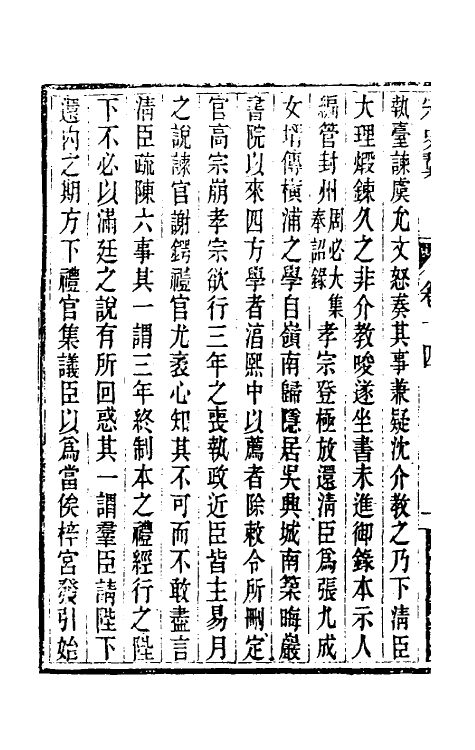 宋史翼 卷十四
執臺諫虞允文怒奏其事兼疑沈介教之乃下清臣
大理煆鍊久之非介教唆遂坐書未進御錄本示人
編管封州周必大集奉詔錄孝宗登極放還清臣爲張九成
女壻傳橫浦之學自嶺南歸隱居吳興城南築晦巖
書院以來四方學者淳熙中以薦者除敕令所刪定
官高宗崩孝宗欲行三年之喪執政近臣皆主易月
之說諫官謝鍔禮官尤袤心知其不可而不敢盡言
清臣疏陳六事其一謂三年終制本之禮經行之陛
下不必以滿廷之說有所回惑其一謂羣臣請陛下
還內之期方下禮官集議臣以爲當俟梓宮發引始